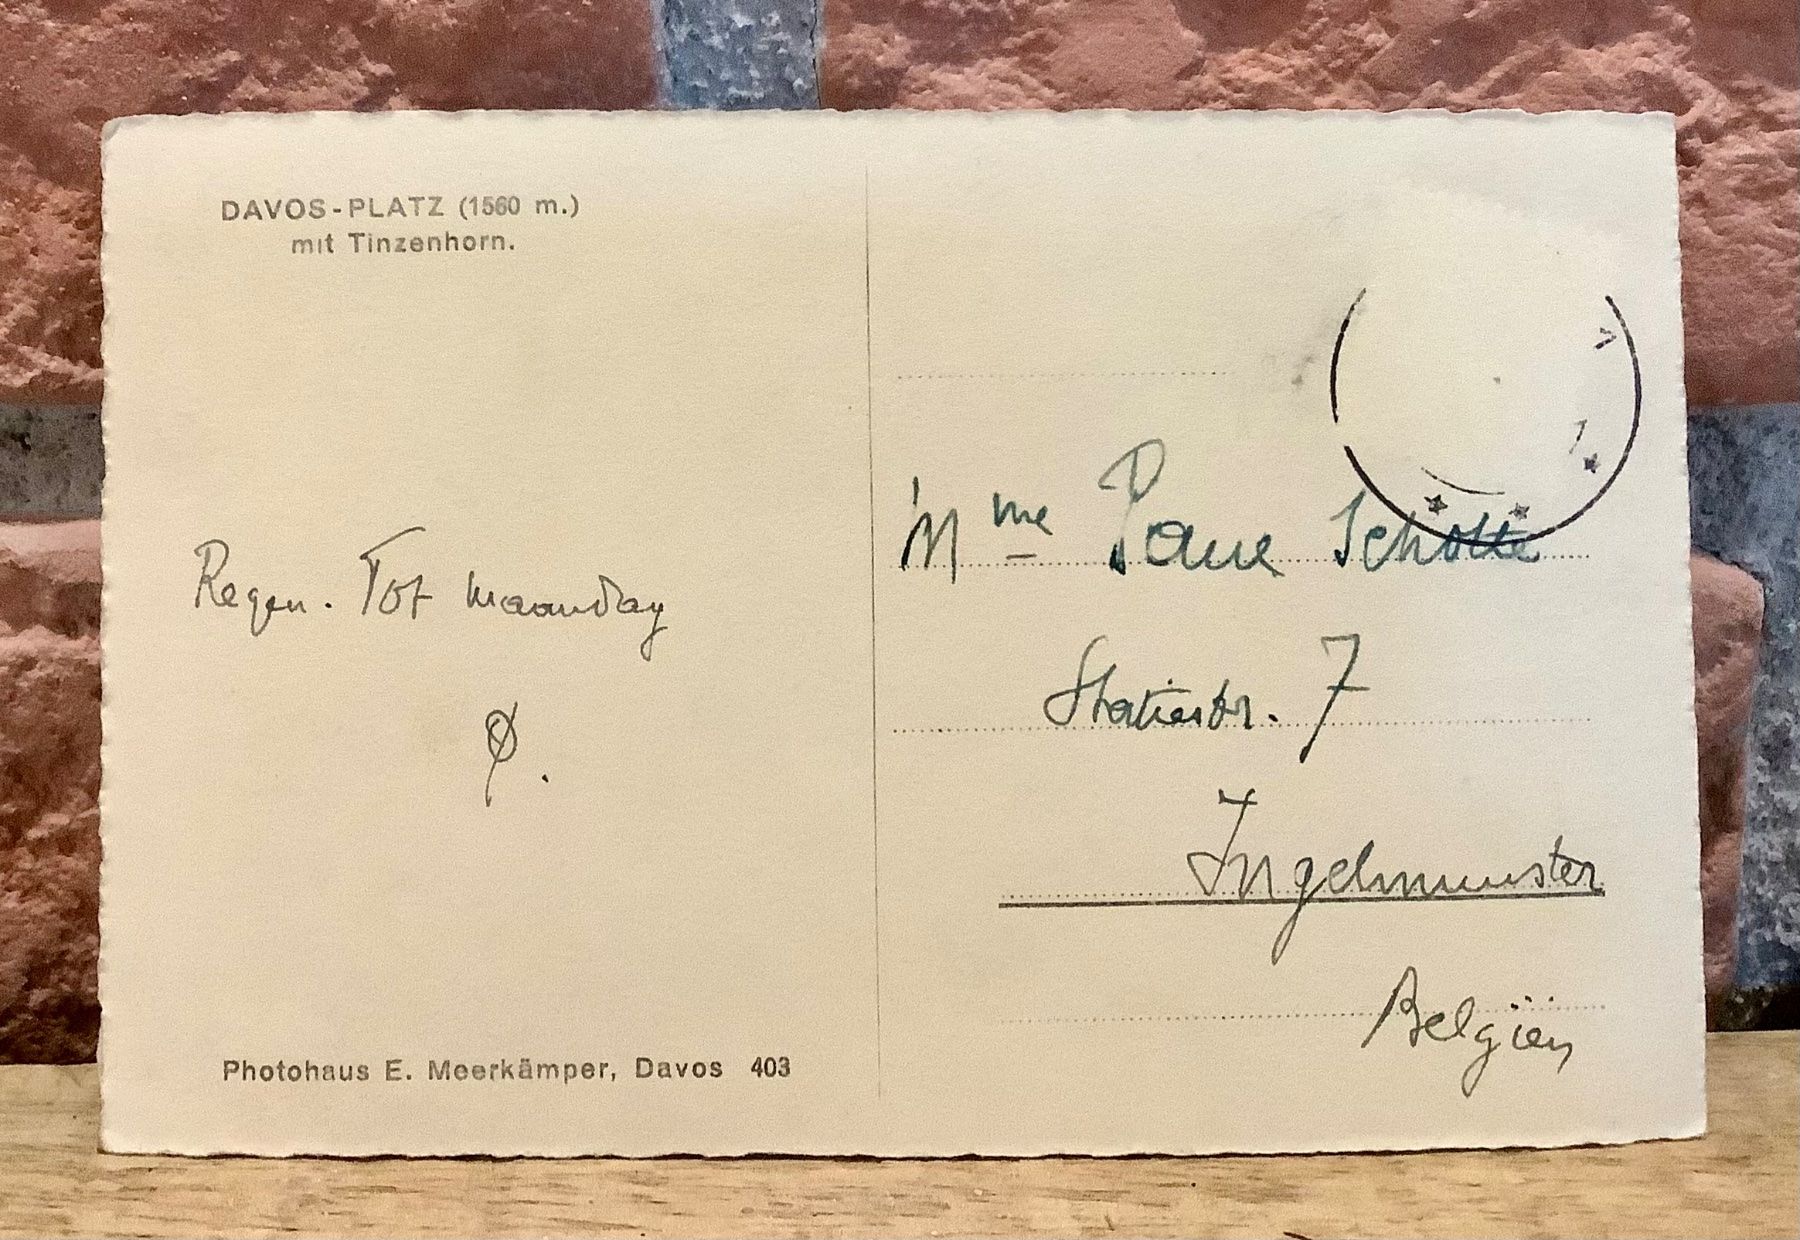 DAVOS-PLATZ (1560 m.)
mit Tinzenhorn.
Regen. Tot maandag
Photohaus E. Meerkämper, Davos 403
Mme Scholte
Statiestr. 7
Ingelmunster
Belgien